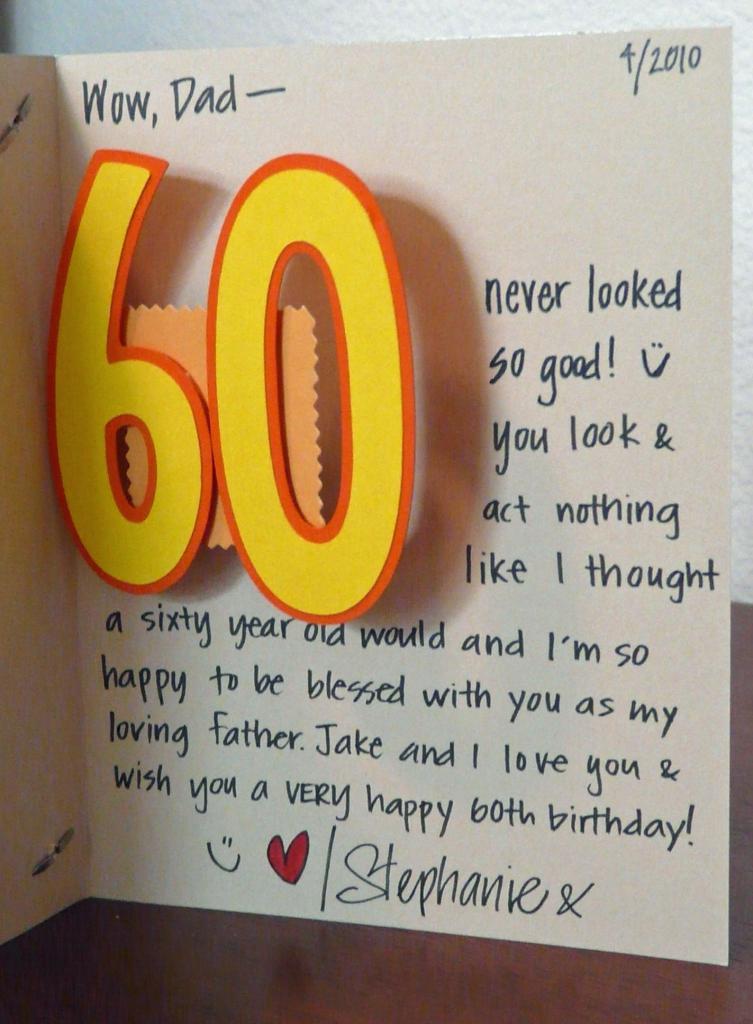 4/2010
Wow, Dad—
60
never looked
so good! ü
you look &
act nothing
like I thought
a sixty year old would and I'm so
happy to be blessed with you as my
loving father. Jake and I love you &
wish you a VERY happy 60th birthday!
Stephanie &